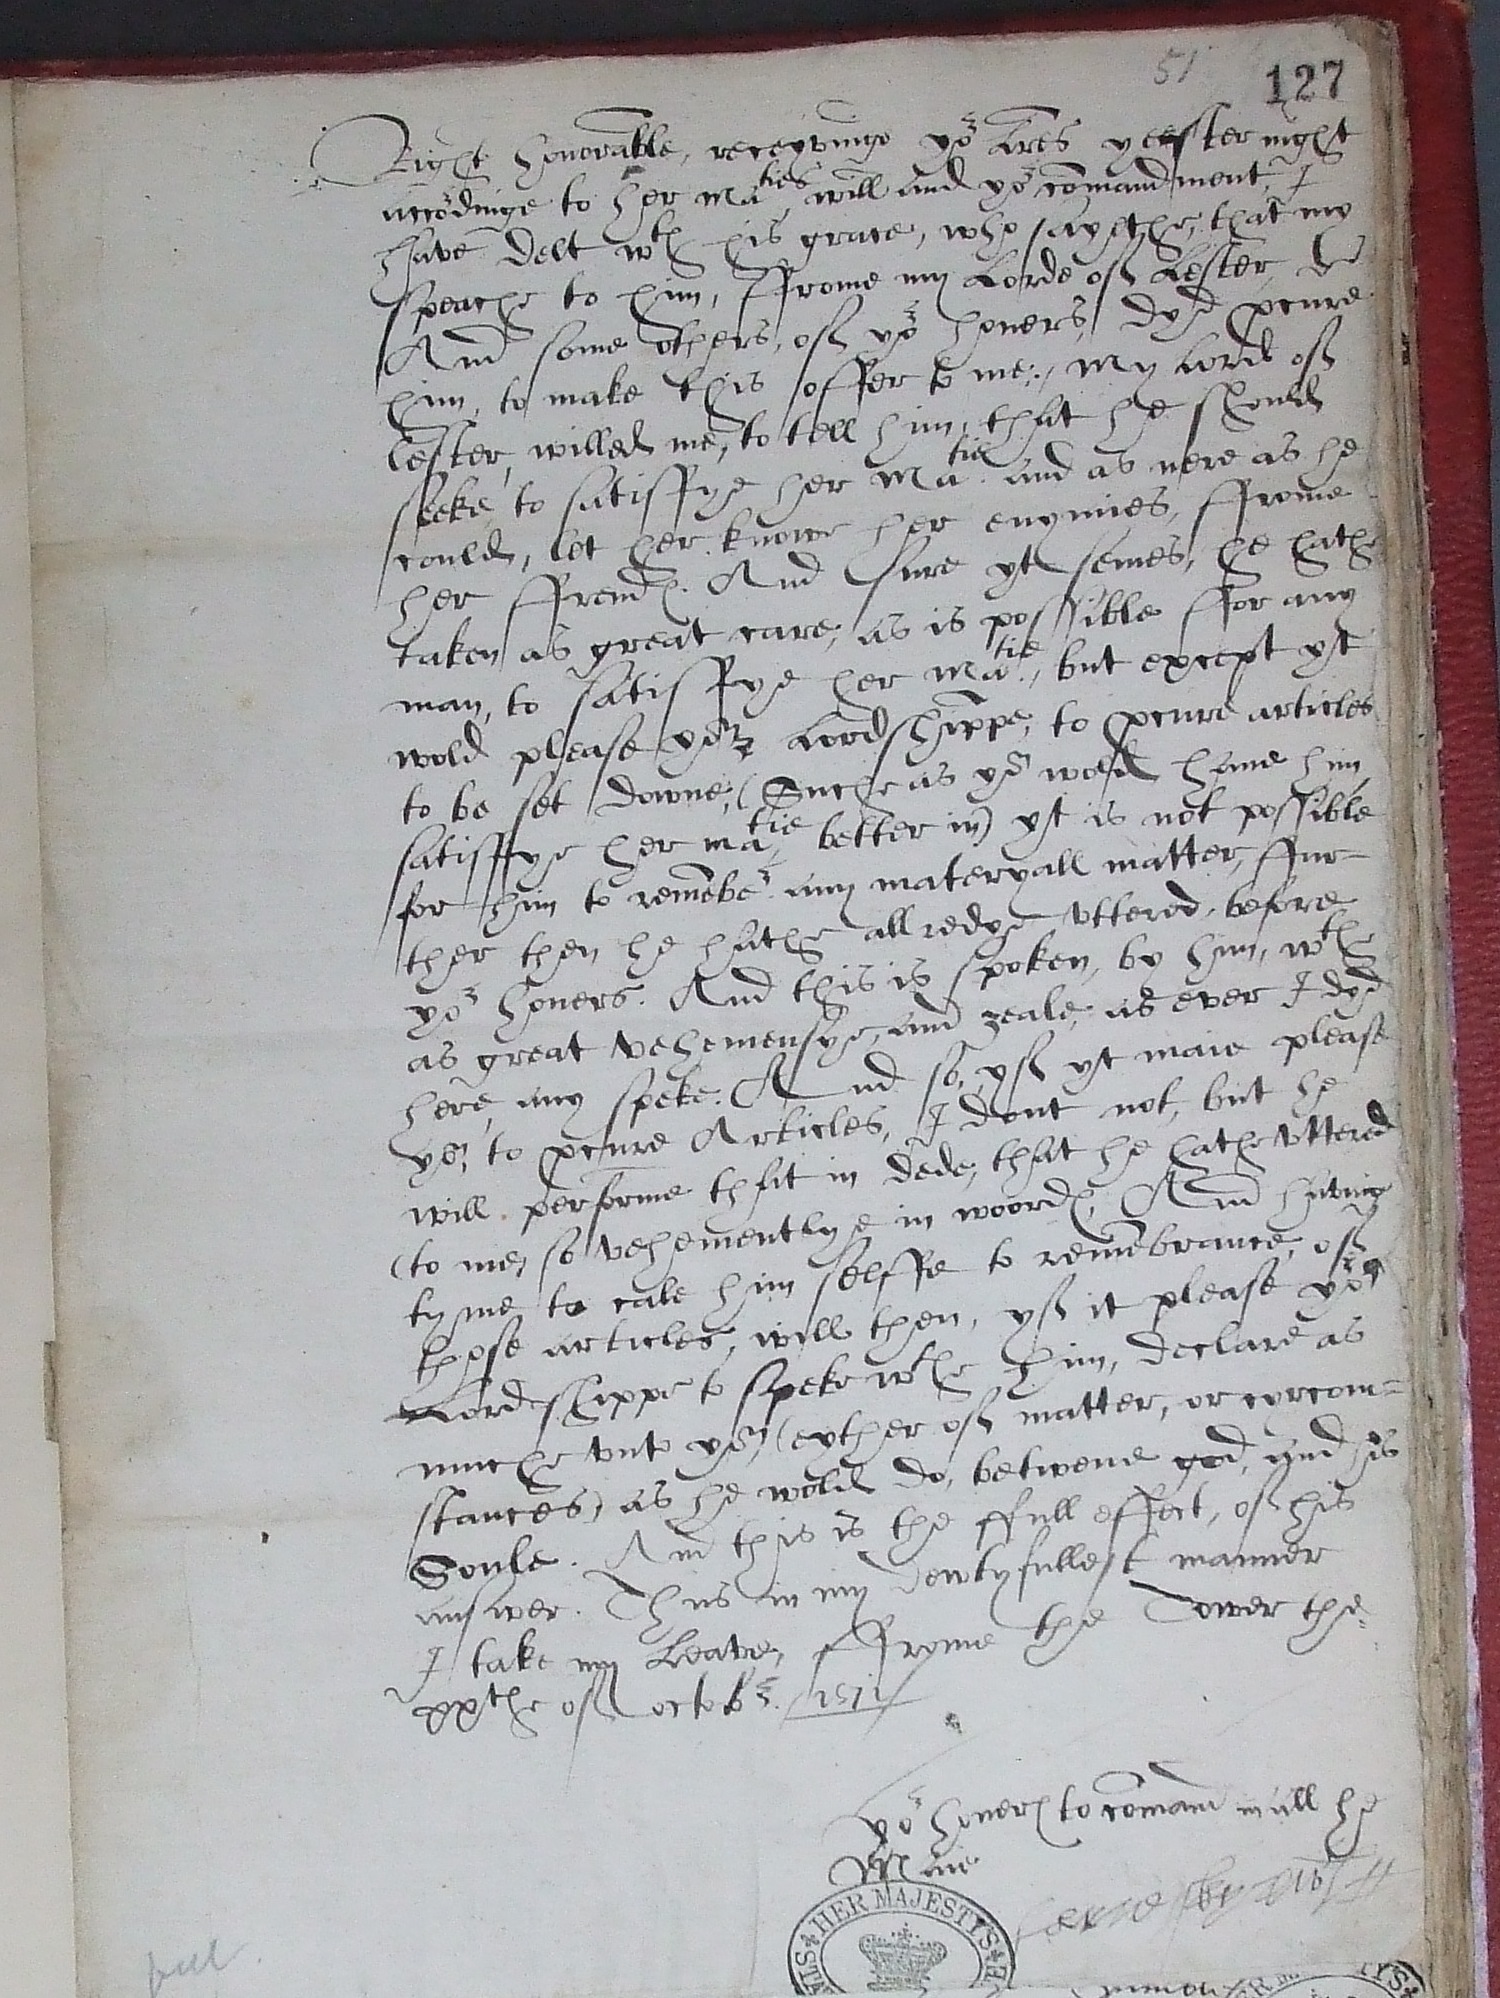 51
127
Right honorable, receyvinge yor Lres yeester night
accordinge to her maties will and yor comandment, I
have delt wth his grace, who sayethe, that my
speache to him, ffrome my Lorde off Lester,
And some others, off yor honers, dyd pcure
him, to make this offer to me., My Lord off
Lester, willed me, to tell him, that he should
seeke, to satisffye her Matie and as nere as he
could, let her knowe her enymies, ffrome
her ffrends. And sure yt semes, he hathe
taken as great care, as is possible ffor any
man, to satisffye her Matie, but except yt
wold please yor Lordshippe, to pcure articles
to be set downe, (Suche as yo wold have him
satisffye her matie better in) yt is not possible
for him to remembr any materyall matter, ffur-
ther then he hathe allredye uttered, before
yor honers. And this is spoken, by him, wthe
as great vehemensye, and zeale, as ever I dyd
here, any speke. And so, yff yt maie please
yow, to pcure Articles, I dout not, but he
will performe that in dede, that he hathe uttered
(to me) so vehementlye in woords, And having
tyme to cale him selffe to remembrance, off
those articles, will then, yff it please yor
Lordshippe to speke wthe him, declare as
muche unto yow, (eyther off matter, or cyrcom=
stances) as he wold do, betwene god, and his
Soule. And this is the ffull effect, off his
answer. Thus in my dewtyfullest manner
I take my Leave, ffrome the Tower the
xxthe off octobr. 1571
yor honers to comand in all he
Maie
HER MAJESTYS